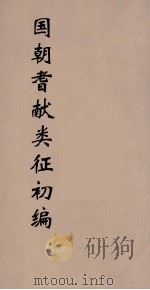 国朝耆献类征初编
研狗
mtoou.info